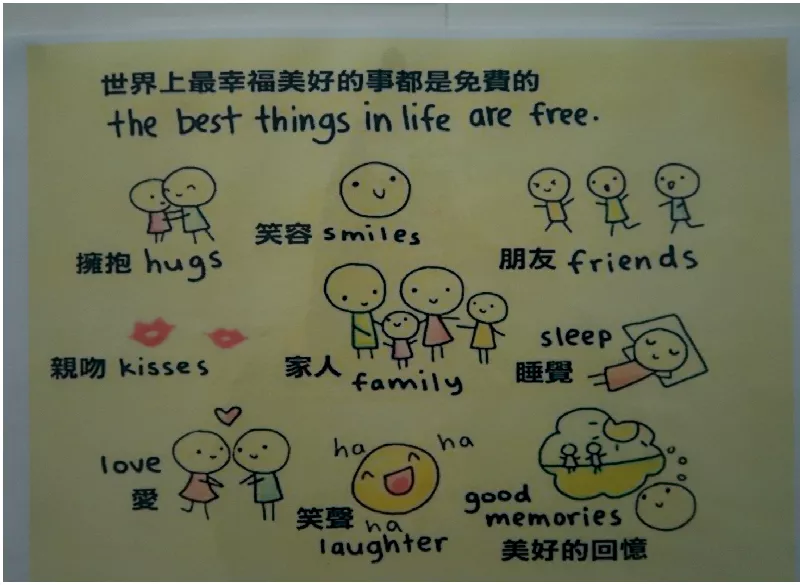 世界上最幸福美好的事都是免費的
the best things in life are free.
擁抱 hugs
笑容 smiles
朋友 friends
親吻 kisses
家人 family
sleep
睡覺
love
愛
ha ha
笑聲 ha
laughter
good
memories
美好的回憶